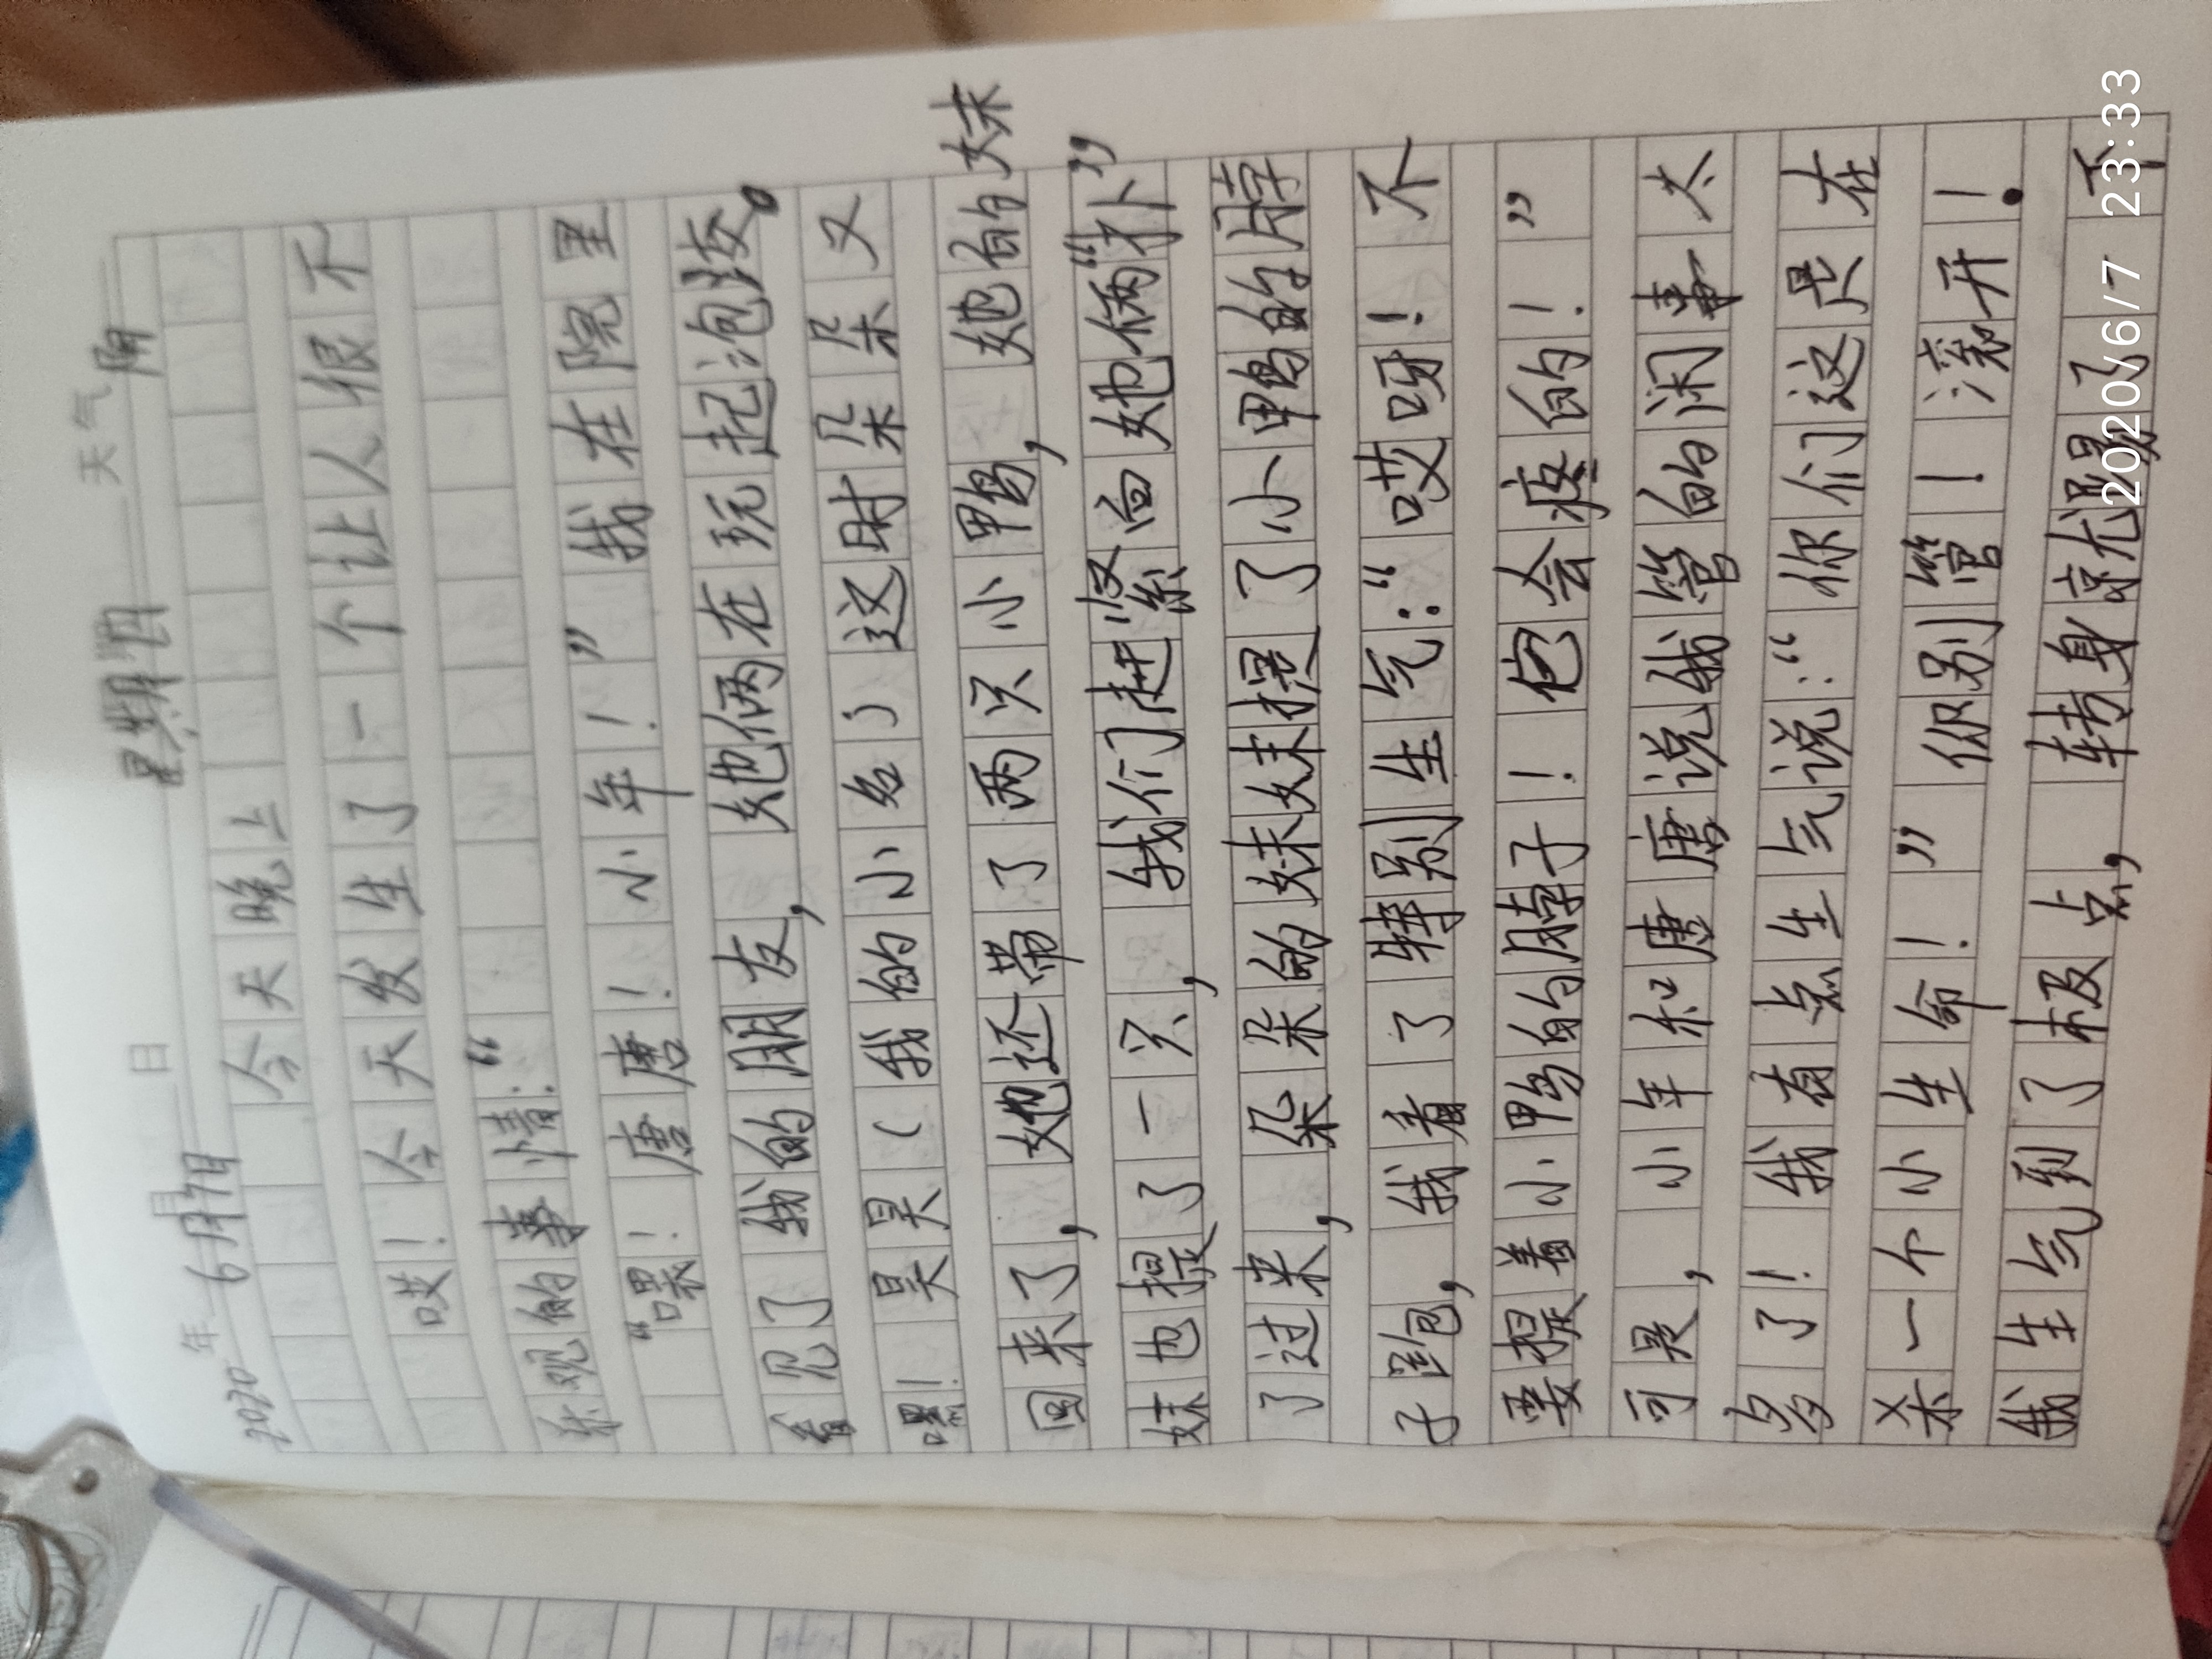 2020年6月7日 星期四 天气 阴
今天晚上
哎！今天发生了一个让人很不
乐观的事情：“
“嘿！唐唐！小年！”我在院里
看见了我的朋友，她她俩在玩起泡胶。
嘿！昊昊（我的小名）这时朵朵又
回来了，她还带了两只小鸭，她的妹
妹也摸了一只，我们赶紧向她俩“扑”
了过来，朵朵的妹妹摸了小鸭的脖
子跑，我看了特别生气：“哎呀！不
要摸着小鸭的脖子！它会疼的！”
可是，小年和唐唐说我管的闲事太
多了！我有点生气说：“你们这是在
杀一个小生命！”你别管！滚开！
我生气到了极点，转身就走了不
2020/6/7 23:33